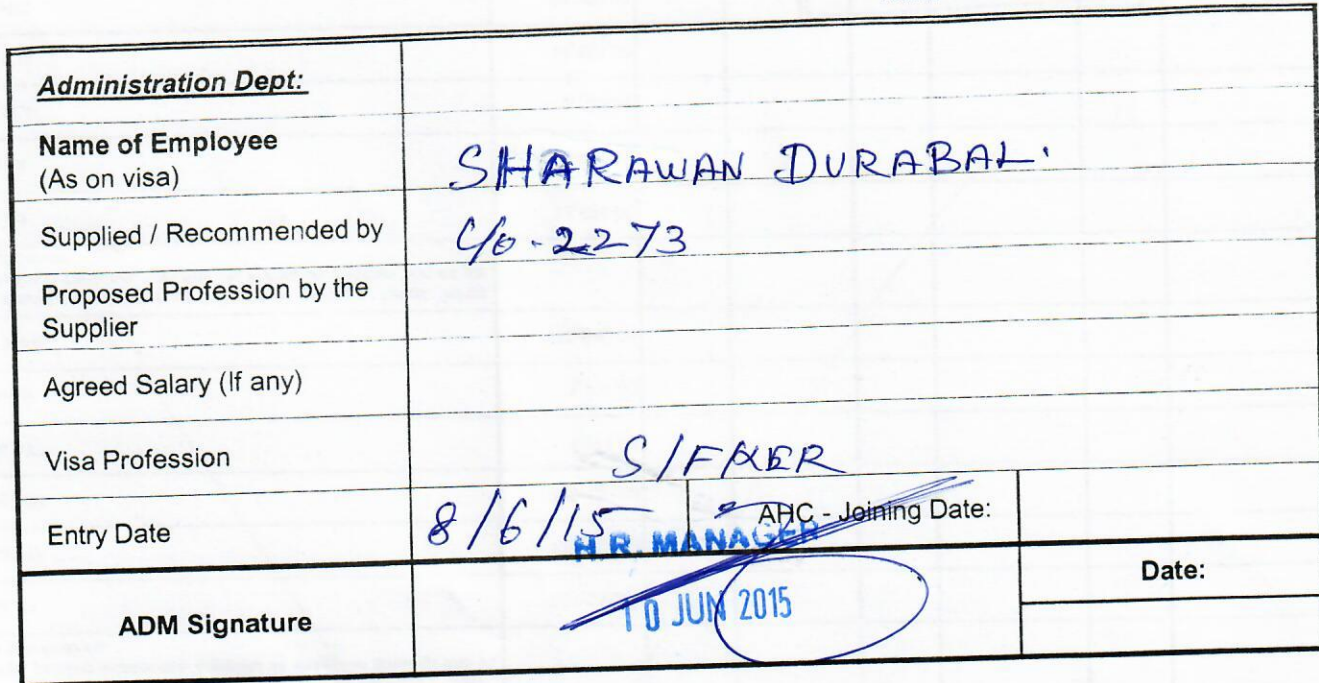 Administration Dept:
Name of Employee
(As on visa)
SHARAWAN DURABAL.
Supplied / Recommended by
C/o - 2273
Proposed Profession by the
Supplier
Agreed Salary (If any)
Visa Profession
S/FIXER
Entry Date
8/6/15
AHC - Joining Date:
H.R. MANAGER
ADM Signature
10 JUN 2015
Date: